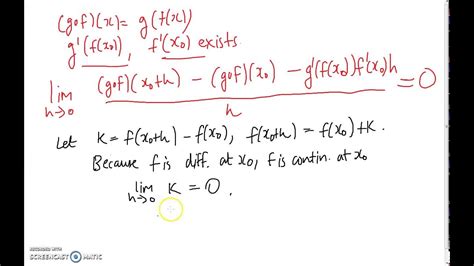 (gof)(x) = g(f(x))
g'(f(x₀)), f'(x₀) exists.
lim h→0 (gof)(x₀+h) - (gof)(x₀) - g'(f(x₀))f'(x₀)h / h = 0
Let K = f(x₀+h) - f(x₀), f(x₀+h) = f(x₀)+K.
Because f is diff. at x₀, f is contin. at x₀
lim h→0 K = 0.
RECORDED WITH
SCREENCAST MATIC